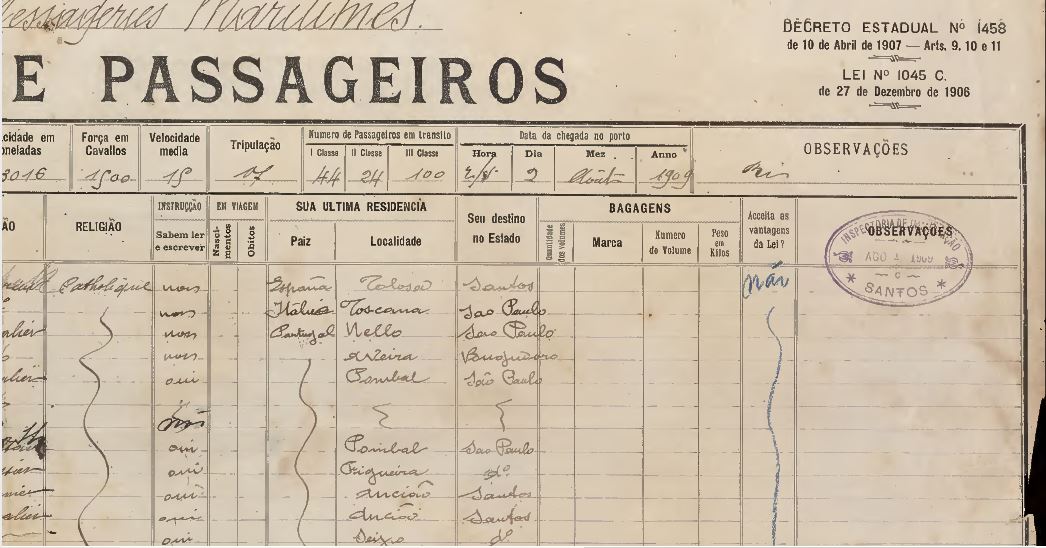 Messageries Maritimes.
DECRETO ESTADUAL Nº 1458
de 10 de Abril de 1907 — Arts. 9, 10 e 11
LEI Nº 1045 C.
de 27 de Dezembro de 1906
E PASSAGEIROS
cidade em oneladas
3016
Força em Cavallos
1500
Velocidade media
15
Tripulação
Numero de Passageiros em transito
I Classe II Classe III Classe
44 24 100
Data da chegada no porto
Hora Dia Mez Anno
2 Août 1909
OBSERVAÇÕES
ÃO
RELIGIÃO
INSTRUCÇÃO
Sabem ler e escrever
EM VIAGEM
Nasci-mentos
Obitos
SUA ULTIMA RESIDENCIA
Paiz Localidade
Seu destino no Estado
BAGAGENS
Quantidade dos volumes
Marca
Numero do Volume
Peso em Kilos
Acceita as vantagens da Lei?
OBSERVAÇÕES
AGO 1909
SANTOS
Catholique non España Tolosa Santos não
non Italia Toscana Sao Paulo
alier non Portugal Nello Sao Paulo
non
alier oui Pombal São Paulo
oui Pombal Sao Paulo
oui Figueira dº
oui Ancião Santos
alier oui Ancião Santos
oui dº